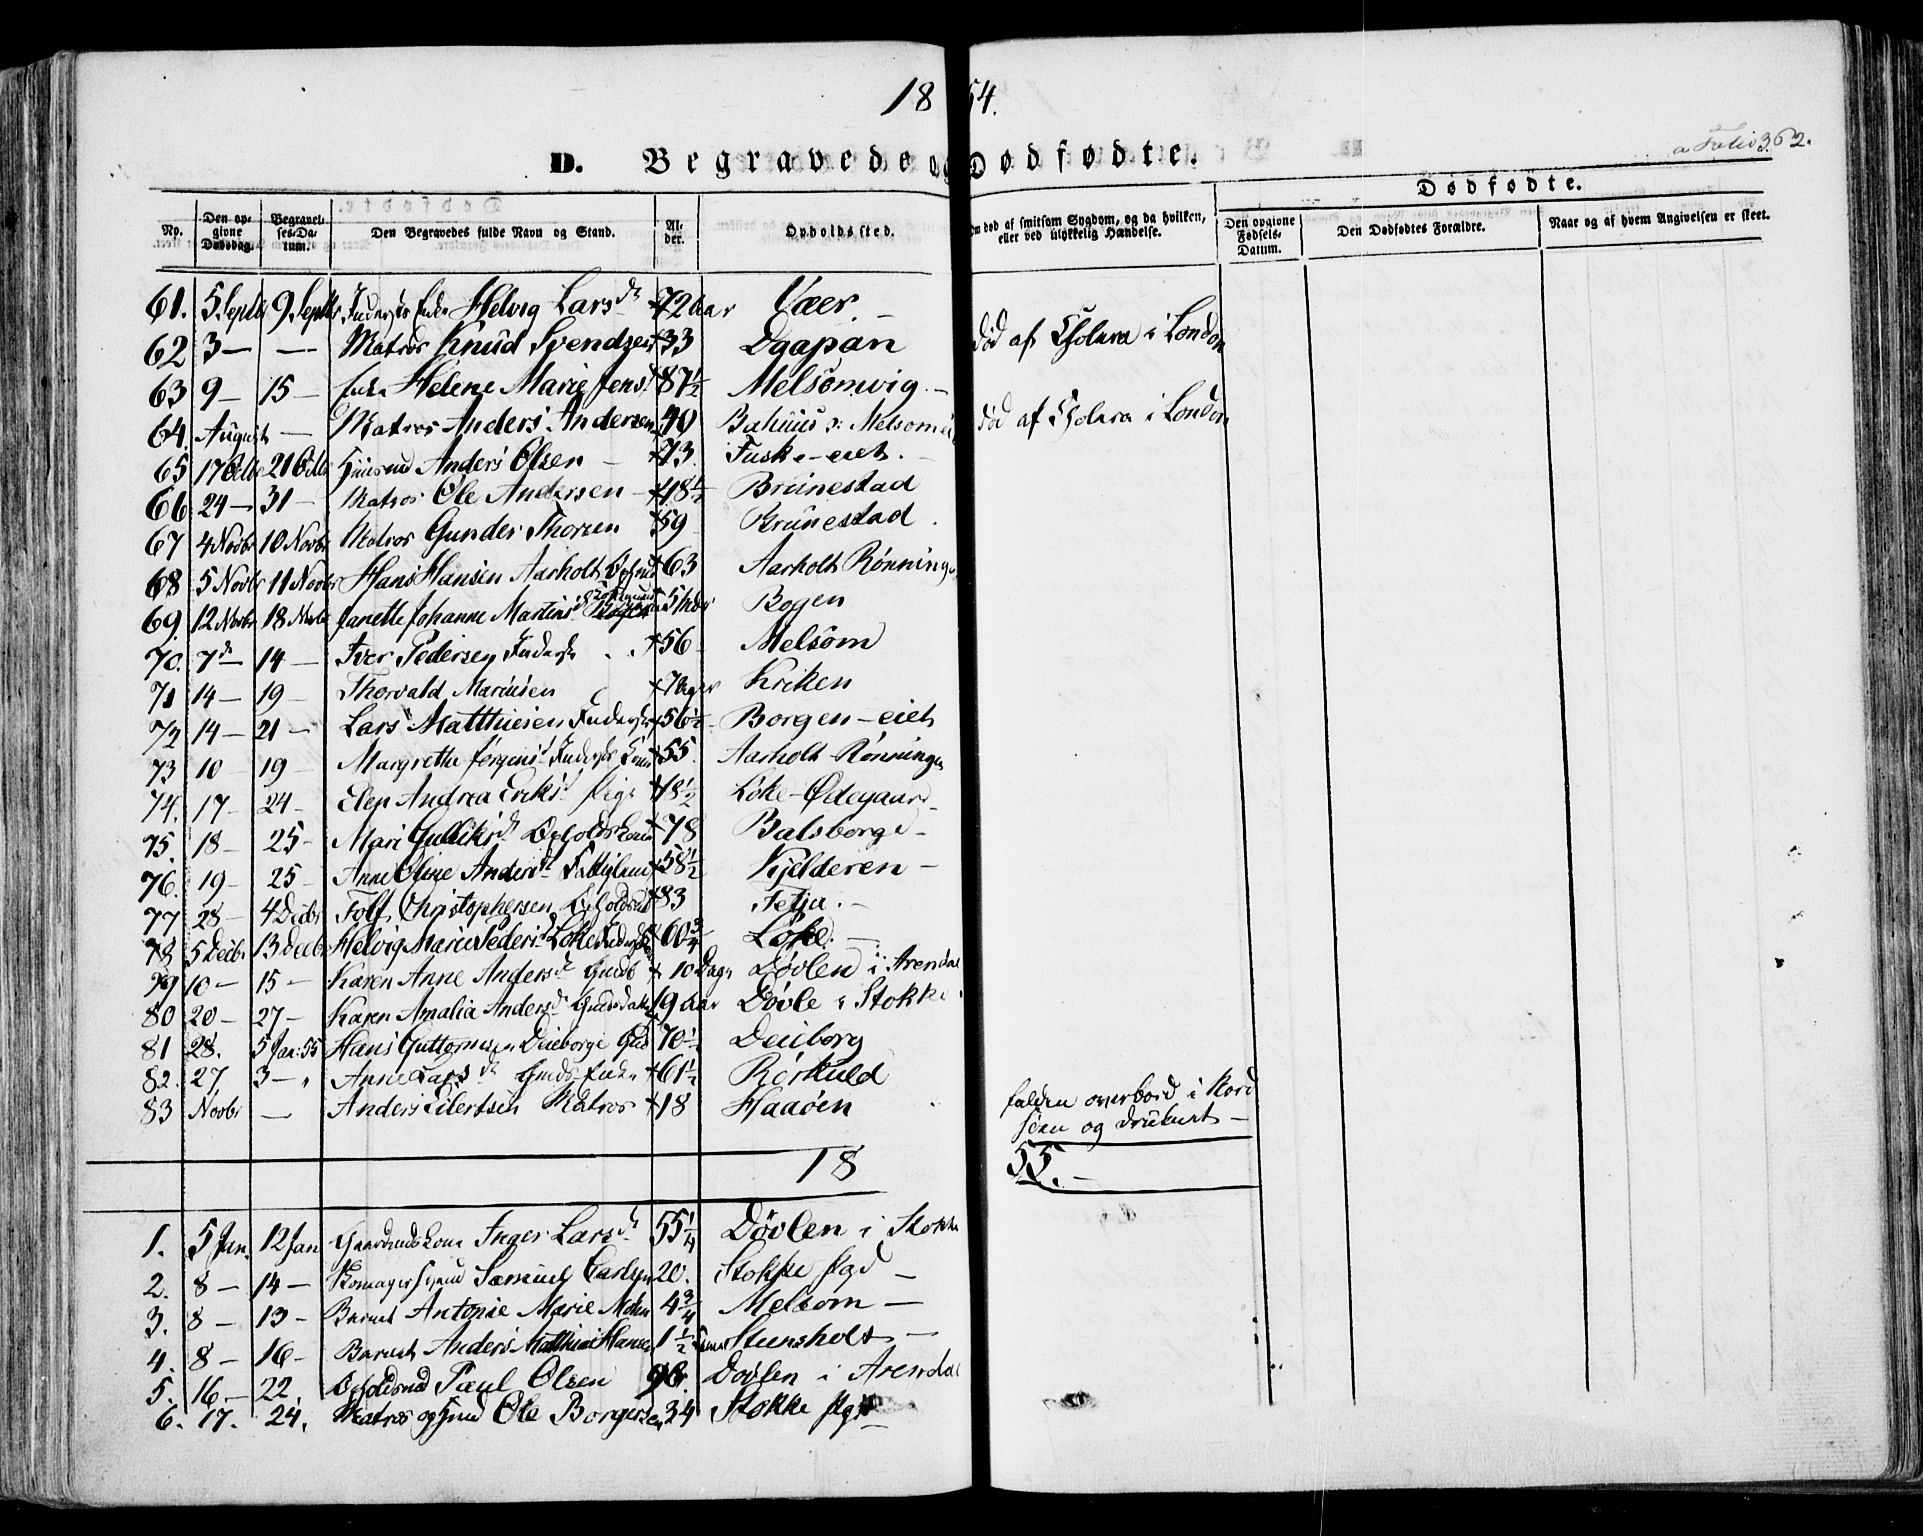 1854.
a Folio 362.
D. Begravede og Dødfødte.
Dødfødte.
No. Den opgivne Dødsdag. Begravelses-Datum. Den Begravedes fulde Navn og Stand. Alder. Opholdssted. Om død af smitsom Sygdom, og da hvilken, eller ved ulykkelig Hændelse. Den opgivne Fødsels-Datum. Den Dødfødtes Forældre. Naar og af hvem Angivelsen er skeet.
61. 5 Septbr 9 Septbr Inderste Enke Helvig Larsdr 72 aar Væer. –
62 3 – – Matros Knud Svendsen 33 Daapan død af Cholera i London
63 9 – 15 – Enke Helene Marie Jensd 87½ Melsomvig. –
64. August – Matros Anders Andersen 40 Melsom død af Cholera i London
65 17 Octbr 21 Octbr Huusmd Anders Olsen – 73. Fuske-eiet. –
66 24 – 31 – Matros Ole Andersen – 48½ Brunestad
67 4 Novbr 10 Novbr Matros Gunder Thorsen 59 Brunestad.
68 5 Novbr 11 Novbr Hans Hansen Aarholt 63 Aarholt Rønningen
69. 12 Novbr 18 Novbr Janette Johanne Martinsd Bogen
70. 7de – 14 – Iver Pedersen Inderst 56 – Melsom
71 14 – 19 – Thorvald Mariusen Kriken
72 14 – 21 – Lars Matthiesen Inderst 56½ Borgen-eiet
73 10 – 19 – Margrethe Jørgensd Inderste Kone 55. Aarholt-Rønningen
74. 17 – 24 – Elen Andrea Eriksd Pige 18½ Løke-Ødegaard –
75. 18 – 25 – Mari Gulliksdr Opholdskone 78 Balsborge –
76. 19 – 25 – Anne Oline Andersdr Fattiglem 58½ Kjelderen –
77 28 – 4 Decbr Tolf Christophersen Opholdsmd 83 Fetja. –
78 5 Decbr 13 Decbr Helvig Marie Pedersd Løke 60¾ Løke. –
79 10 – 15 – Karen Anne Andersdr Gmdb 10 Dage Døvlen i Arendal
80 20 – 27 – Karen Amalia Andersdr 19 aar Døvle i Stokke.
81 28. 5 Jan: 55 Hans Guttormsen Deieborge Gmd 70½ Deieborg
82. 27 3 – " Anne Larsdr Gmds Enke 61½ Rørkuld
83 Novbr – Anders Eilertsen Matros 18 Haaøen falden overbord i Nord
søen og druknet –
1855. –
1. 5 Jan. 12 Jan Gaardmds Kone Inger Larsdr 55¼ Døvlen i Stokke
2. 8 – 14 – Skomager Samuel Carlsen 20. Stokke Pgd –
3. 8 – 13 – Barnet Antonie Marie 4¾ Melsom –
4. 8 – 16 – Barnet Anders Matthias Hansen 1½ Steensholt –
5. 16 – 22. Opholdsmd Paul Olsen 90. Døvlen i Arendal
6. 17. 24. Matros og Ole Borgersen 34 Stokke Pgd –